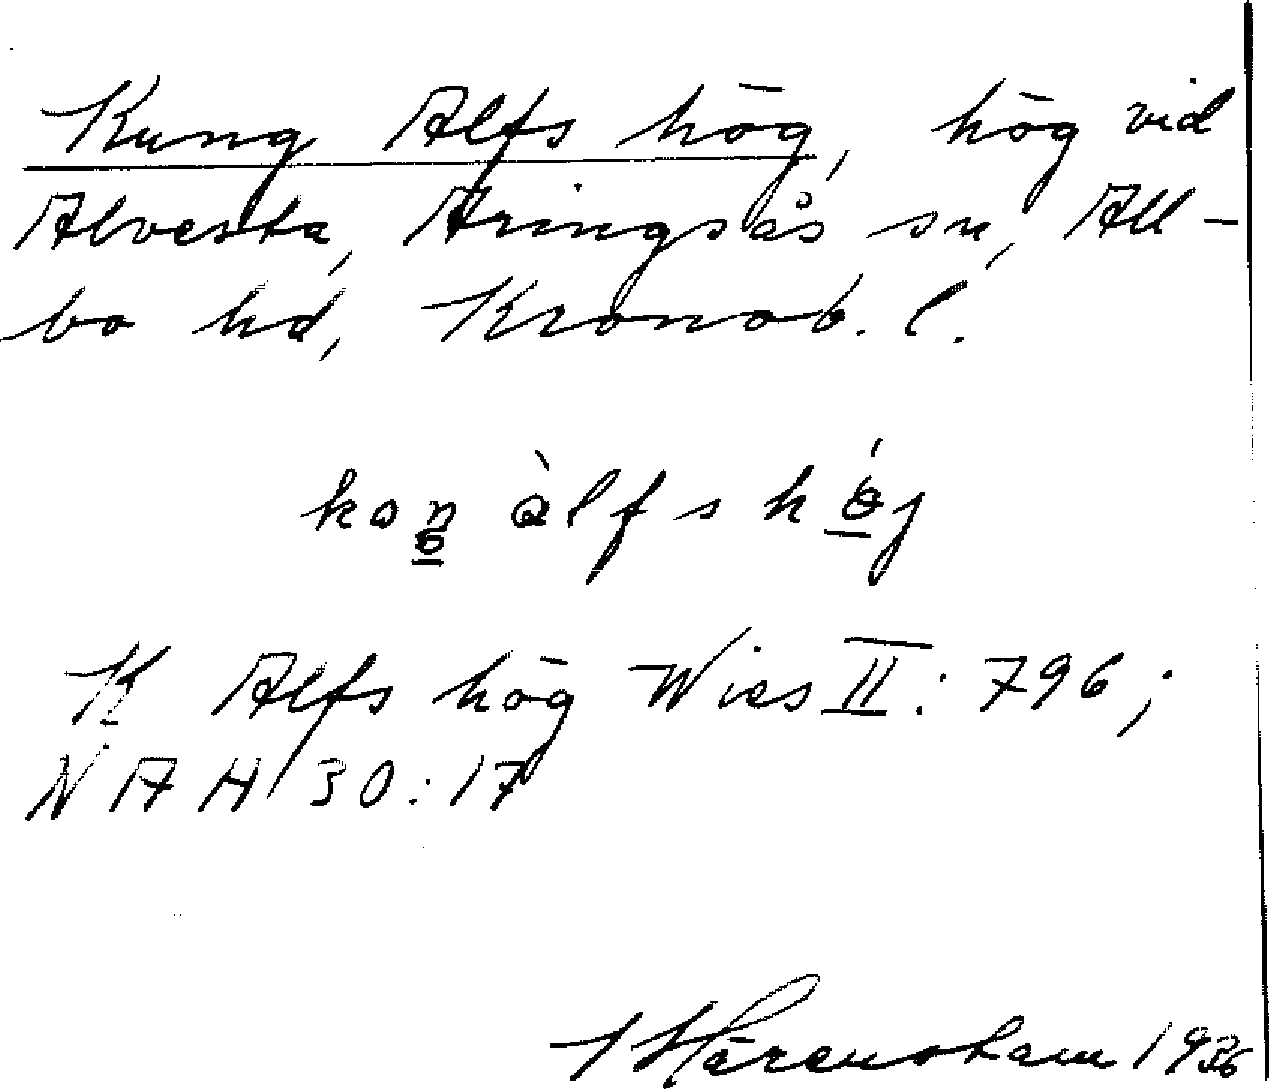 Kung Alfs hög, hög vid
Alvesta, Aringsås sn, All-
bo hd, Kronob. l.
àlfs
K Alfs hög Wies II: 796;
NAH 30:17
1936